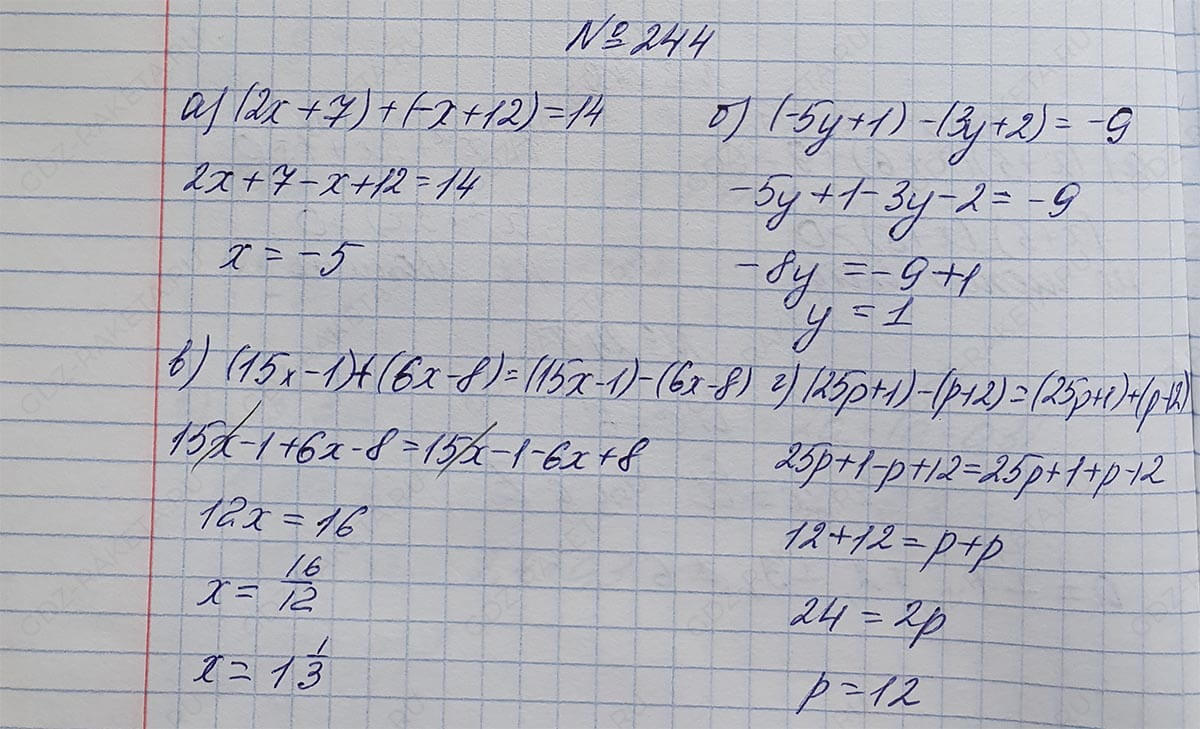 №244
а) (2x+7)+(-x+12)=14
2x+7-x+12=14
x=-5
б) (-5y+1)-(3y+2)=-9
-5y+1-3y-2=-9
-8y=-9+1
y=1
в) (15x-1)+(6x-8)=(15x-1)-(6x-8)
15x-1+6x-8=15x-1-6x+8
12x=16
x=16/12
x=1 1/3
г) (25p+1)-(p+2)=(25p+1)+(p-12)
25p+1-p+12=25p+1+p-12
12+12=p+p
24=2p
p=12
GDZ-RAKETA.RU